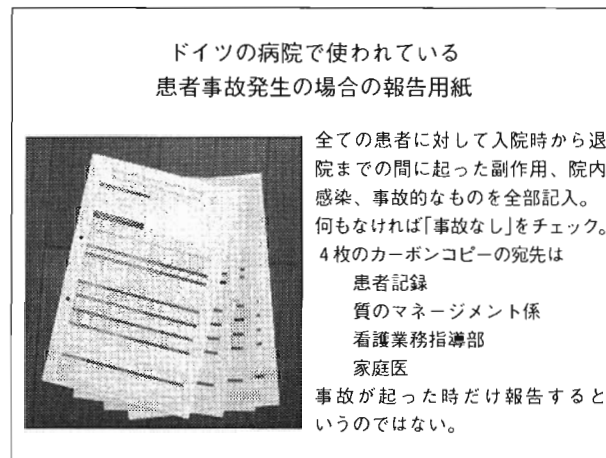 ドイツの病院で使われている
患者事故発生の場合の報告用紙
全ての患者に対して入院時から退
院までの間に起った副作用、院内
感染、事故的なものを全部記入。
何もなければ「事故なし」をチェック。
4枚のカーボンコピーの宛先は
患者記録
質のマネージメント係
看護業務指導部
家庭医
事故が起った時だけ報告すると
いうのではない。